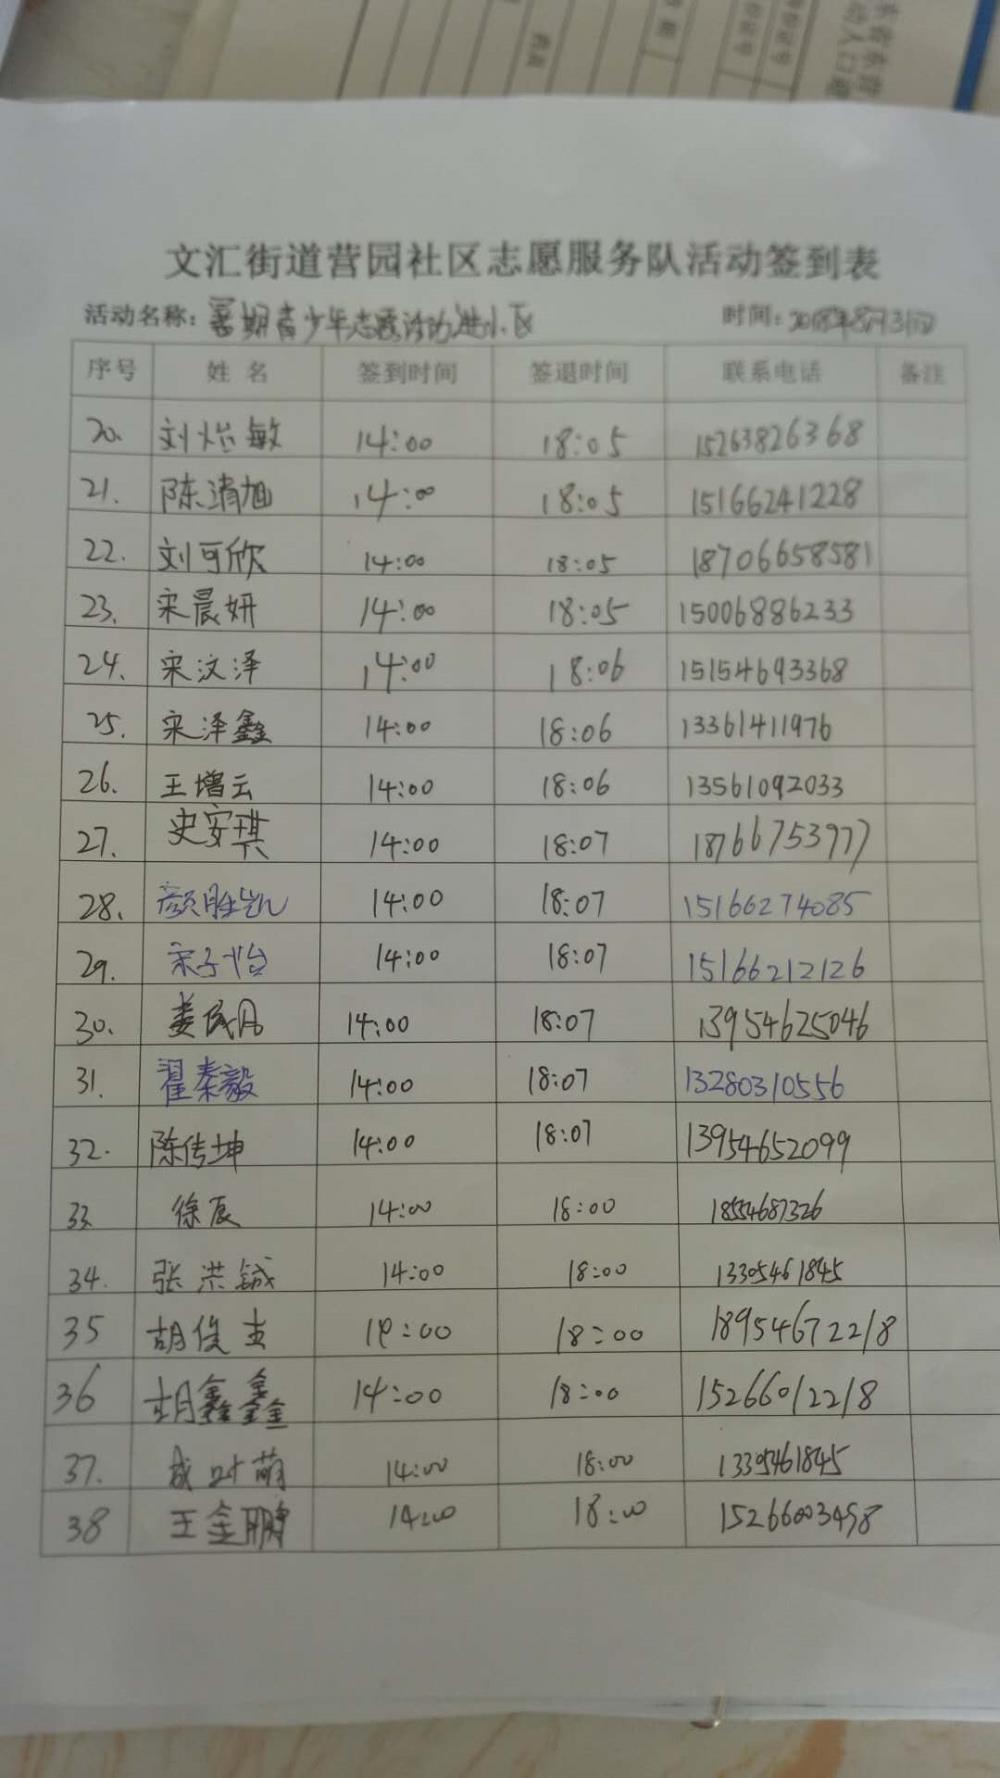 文汇街道营园社区志愿服务队活动签到表
活动名称：暑期青少年志愿活动进小区 时间：2018年8月31日
序号 姓名 签到时间 签退时间 联系电话 备注
20. 刘怡敏 14:00 18:05 15263826368
21. 陈清旭 14:00 18:05 15166241228
22. 刘可欣 14:00 18:05 18706658581
23. 宋晨妍 14:00 18:05 15006886233
24. 宋汶泽 14:00 18:06 15154693368
25. 宋泽鑫 14:00 18:06 13361411976
26. 王增云 14:00 18:06 13561092033
27. 史安琪 14:00 18:07 18766753977
28. 颜胜凯 14:00 18:07 15166274085
29. 宋子怡 14:00 18:07 15166212126
30. 姜 14:00 18:07 13954625046
31. 翟秦毅 14:00 18:07 13280310556
32. 陈传坤 14:00 18:07 13954652099
33. 徐辰 14:00 18:00 18554687326
34. 张洪铖 14:00 18:00 13305461845
35 胡俊圭 14:00 18:00 18954672218
36 胡鑫鑫 14:00 18:00 15266012218
37. 14:00 18:00 13305461845
38 王金鹏 14:00 18:00 15266003498